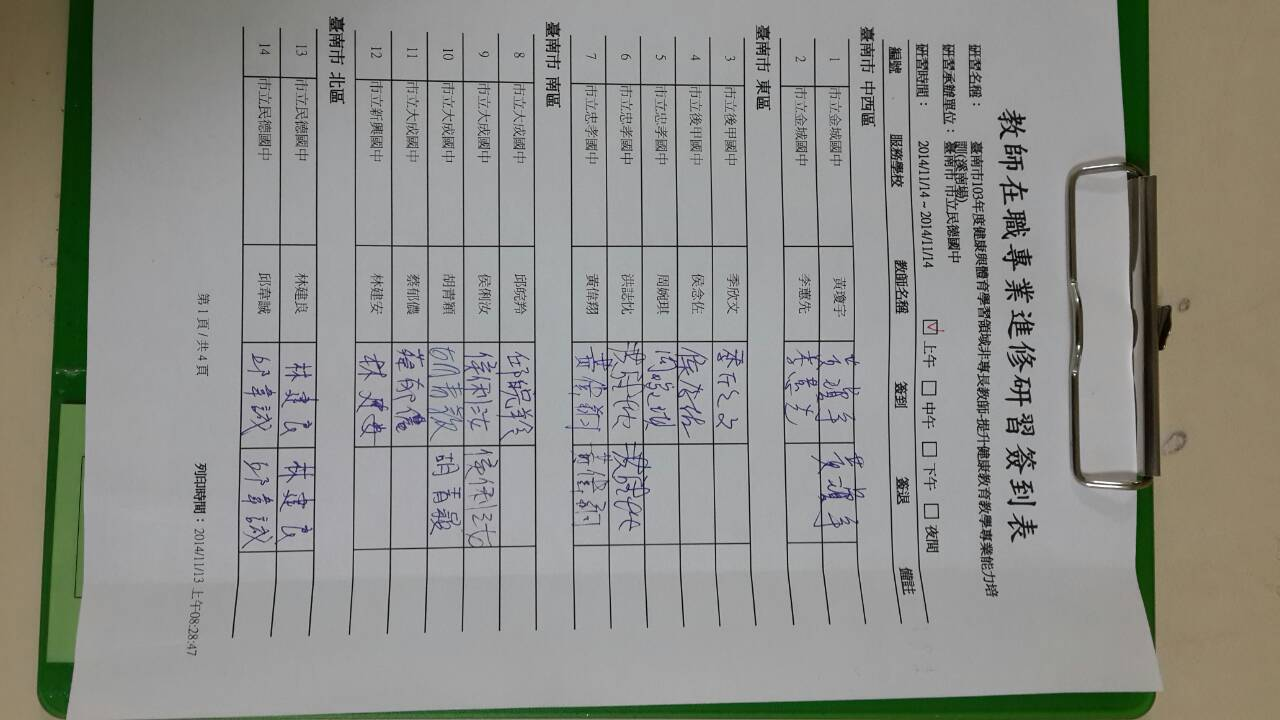 教師在職專業進修研習簽到表
研習名稱： 臺南市103年度健康與體育學習領域非專長教師-提升健康教育教學專業能力培
訓(溪南場)
研習承辦單位： 臺南市 市立民德國中
研習時間： 2014/11/14 ~ 2014/11/14 ☑ 上午 □ 中午 □ 下午 □ 夜間
編號 服務學校 教師名稱 簽到 簽退 備註
臺南市 中西區
1 市立金城國中 黃瓊宇 黃瓊宇 黃瓊宇
2 市立金城國中 李惠先 李惠先
臺南市 東區
3 市立後甲國中 季欣文 季欣文
4 市立後甲國中 侯念佐 侯念佐
5 市立忠孝國中 周婉琪 周婉琪
6 市立忠孝國中 洪誌忱 洪誌忱 洪誌忱
7 市立忠孝國中 黃偉翔 黃偉翔 黃偉翔
臺南市 南區
8 市立大成國中 邱皖羚 邱皖羚
9 市立大成國中 侯俐汝 侯俐汝 侯俐汝
10 市立大成國中 胡青穎 胡青穎 胡青穎
11 市立大成國中 蔡郁儂 蔡郁儂
12 市立新興國中 林建安 林建安
臺南市 北區
13 市立民德國中 林建良 林建良 林建良
14 市立民德國中 邱韋誠 邱韋誠 邱韋誠
第 1 頁 / 共 4 頁 列印時間： 2014/11/13 上午08:28:47